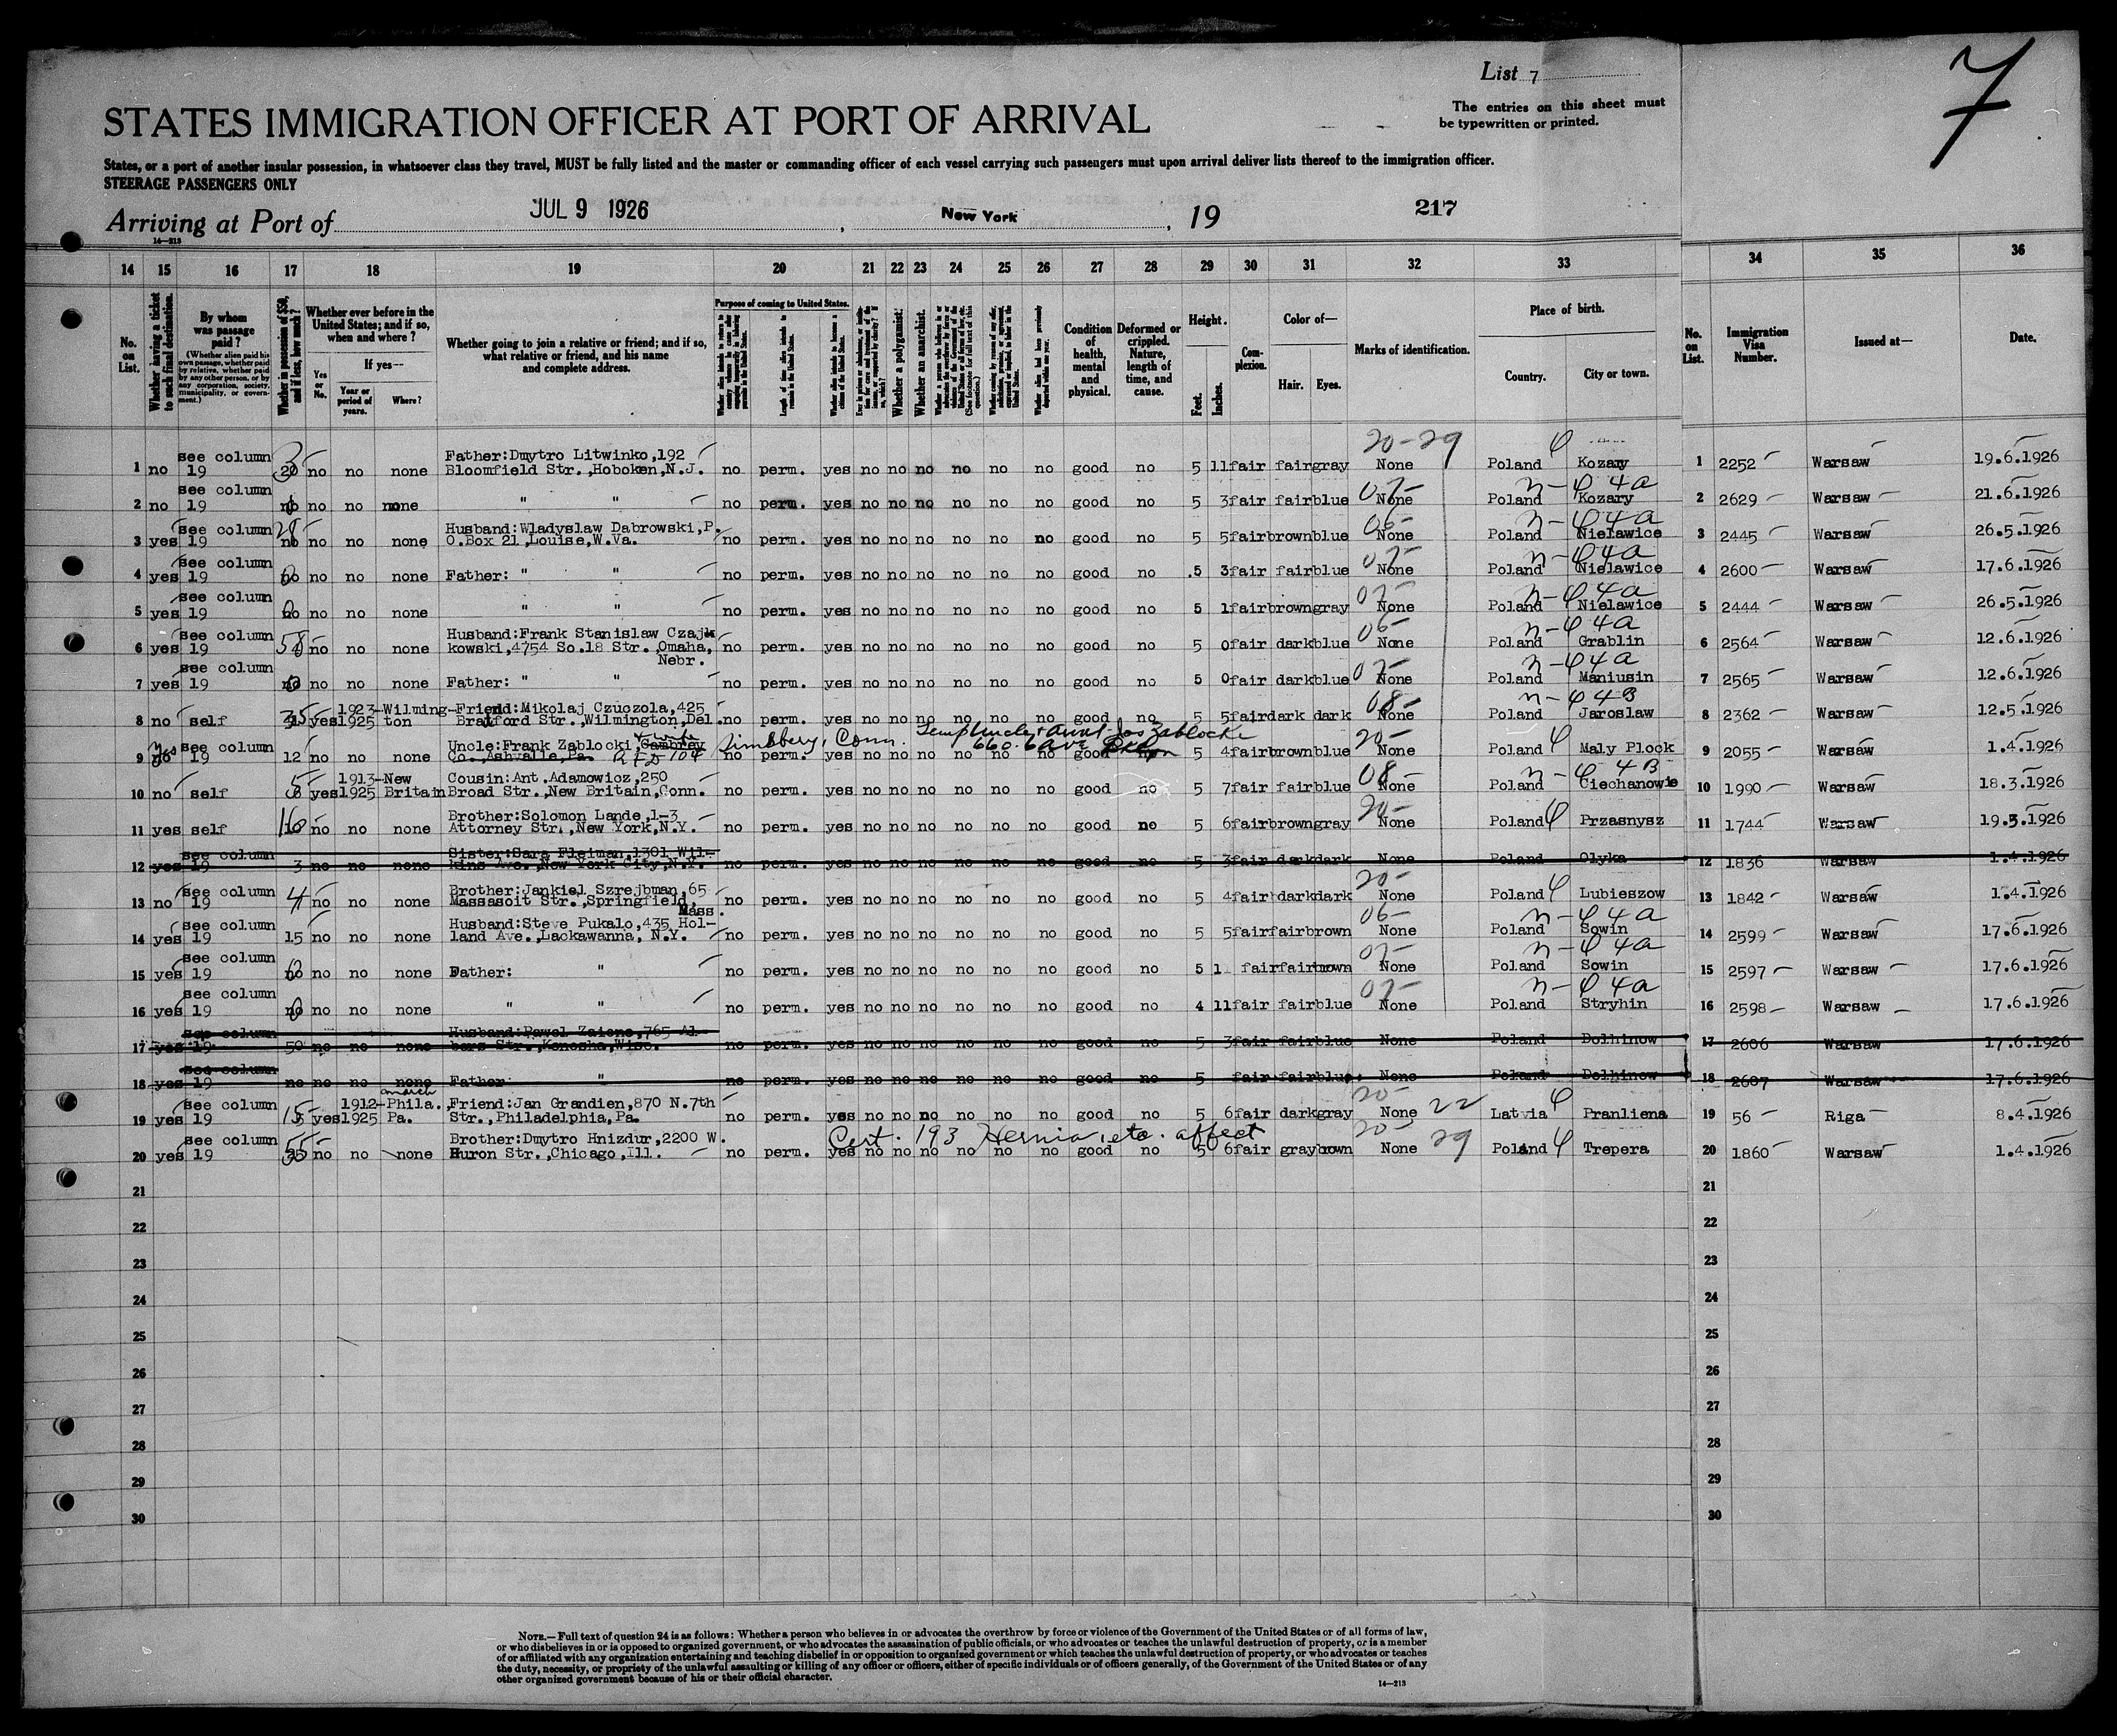 List 7
7
STATES IMMIGRATION OFFICER AT PORT OF ARRIVAL
The entries on this sheet must
be typewritten or printed.
States, or a port of another insular possession, in whatsoever class they travel, MUST be fully listed and the master or commanding officer of each vessel carrying such passengers must upon arrival deliver lists thereof to the immigration officer.
STEERAGE PASSENGERS ONLY
Arriving at Port of JUL 9 1926, New York, 19 217
14—213
14 15 16 17 18 19 20 21 22 23 24 25 26 27 28 29 30 31 32 33 34 35 36
No. on List.
Whether having a ticket to such final destination.
By whom was passage paid?
(Whether alien paid his own passage, whether paid by relative, whether paid by any other person, or by any corporation, society, municipality, or government.)
Whether in possession of $50, and if less, how much?
Whether ever before in the United States; and if so, when and where?
If yes—
Yes or No.
Year or period of years.
Where?
Whether going to join a relative or friend; and if so, what relative or friend, and his name and complete address.
Purpose of coming to United States.
Length of time alien intends to remain in the United States.
Whether alien intends to become a citizen of the United States.
Whether a polygamist.
Whether an anarchist.
Condition of health, mental and physical.
Deformed or crippled. Nature, length of time, and cause.
Height.
Feet. Inches.
Complexion.
Color of—
Hair. Eyes.
Marks of identification.
Place of birth.
Country. City or town.
No. on List.
Immigration Visa Number.
Issued at—
Date.
see column Father:Dmytro Litwinko,192 20-29
1 no 19 20 no no none Bloomfield Str.,Hoboken,N.J. no perm. yes no no no no no no good no 5 11 fair fair gray None Poland Kozary 1 2252 Warsaw 19.6.1926
see column n- 4a
2 no 19 no no no none " " no perm. yes no no no no no no good no 5 3 fair fair blue None Poland Kozary 2 2629 Warsaw 21.6.1926
see column Husband:Wladyslaw Dabrowski,P. 06- n- 4a
3 yes 19 no no no none O.Box 21,Louise,W.Va. no perm. yes no no no no no no good no 5 5 fair brown blue None Poland Nielawice 3 2445 Warsaw 26.5.1926
see column 07- n- 4a
4 yes 19 no no no none Father: " " no perm. yes no no no no no no good no 5 3 fair fair blue None Poland Nielawice 4 2600 Warsaw 17.6.1926
see column 07- n- 4a
5 yes 19 no no no none " " no perm. yes no no no no no no good no 5 1 fair brown gray None Poland Nielawice 5 2444 Warsaw 26.5.1926
see column Husband:Frank Stanislaw Czajk 06- n- 4a
6 yes 19 58 no no none kowski,4754 So.18 Str.,Omaha, no perm. yes no no no no no no good no 5 0 fair dark blue None Poland Grablin 6 2564 Warsaw 12.6.1926
Nebr.
see column 07- n- 4a
7 yes 19 no no no none Father: " " no perm. yes no no no no no no good no 5 0 fair dark blue None Poland Maniusin 7 2565 Warsaw 12.6.1926
1923-Wilming- Friend:Mikolaj Czuozola,425 08- n- 4B
8 no self 35 yes 1925 ton Bratford Str.,Wilmington,Del. no perm. yes no no no no no no good no 5 5 fair dark dark None Poland Jaroslaw 8 2362 Warsaw 12.5.1926
see column Uncle:Frank Zablocki, Cambrey Simsbury, Conn. Temp Uncle & Aunt Jos Zablocki 20-
9 no 19 12 no no none Co.,Ashvalle,Pa. RFD 104 660. 6 ave no perm. yes no no no no no no good no 5 4 fair brown blue None Poland Maly Plock 9 2055 Warsaw 1.4.1926
1913-New Cousin:Ant.Adamowicz,250 08- n- 4B
10 no self yes 1925 Britain Broad Str.,New Britain,Conn. no perm. yes no no no no no no good no 5 7 fair fair blue None Poland Ciechanowie 10 1990 Warsaw 18.3.1926
Brother:Solomon Lande,1-3 20-
11 yes self 10 no no none Attorney Str.,New York,N.Y. no perm. yes no no no no no no good no 5 6 fair brown gray None Poland Przasnysz 11 1744 Warsaw 19.3.1926
see column Sister:Sara Fleiman,1301 Wil-
12 yes 19 3 no no none kins Ave.,New York City,N.Y. no perm. yes no no no no no no good no 5 3 fair dark dark None Poland Olyka 12 1836 Warsaw 1.4.1926
see column Brother:Jankiel Szrejbman,65 20-
13 no 19 4 no no none Massasoit Str.,Springfield, no perm. yes no no no no no no good no 5 4 fair dark dark None Poland Lubieszow 13 1842 Warsaw 1.4.1926
Mass.
see column Husband:Steve Pukalo,435 Hol- 06- n- 4a
14 yes 19 15 no no none land Ave.,Lackawanna, N.Y. no perm. yes no no no no no no good no 5 5 fair fair brown None Poland Sowin 14 2599 Warsaw 17.6.1926
see column 07- n- 4a
15 yes 19 no no no none Father: " no perm. yes no no no no no no good no 5 1 fair fair brown None Poland Sowin 15 2597 Warsaw 17.6.1926
see column 07- n- 4a
16 yes 19 no no no none " " no perm. yes no no no no no no good no 4 11 fair fair blue None Poland Stryhin 16 2598 Warsaw 17.6.1926
see column Husband:Pawel Zaienc,765 Al-
17 yes 19 50 no no none bers Str.,Kenosha,Wisc. no perm. yes no no no no no no good no 5 3 fair fair blue None Poland Dolhinow 17 2606 Warsaw 17.6.1926
see column
18 yes 19 no no no none Father " no perm. yes no no no no no no good no 5 fair fair blue None Poland Dolhinow 18 2607 Warsaw 17.6.1926
see column 1912-Phila., Friend:Jan Grandien,870 N.7th 20-
19 yes 19 15 yes 1925 Pa. Str.,Philadelphia,Pa. no perm. yes no no no no no no good no 5 6 fair dark gray None 22 Latvia Pranliena 19 56 Riga 8.4.1926
see column 55 Brother:Dmytro Hnizdur,2200 W. Cert. 193 Hernia, etc. affect 20-
20 yes 19 35 no no none Huron Str.,Chicago,Ill. no perm. yes no no no no no no good no 5 6 fair gray brown None 29 Poland Trepera 20 1860 Warsaw 1.4.1926
21 21
22 22
23 23
24 24
25 25
26 26
27 27
28 28
29 29
30 30
NOTE.—Full text of question 24 is as follows: Whether a person who believes in or advocates the overthrow by force or violence of the Government of the United States or of all forms of law,
or who disbelieves in or is opposed to organized government, or who advocates the assassination of public officials, or who advocates or teaches the unlawful destruction of property, or is a member
of or affiliated with any organization entertaining and teaching disbelief in or opposition to organized government or which teaches the unlawful destruction of property, or who advocates or teaches
the duty, necessity, or propriety of the unlawful assaulting or killing of any officer or officers, either of specific individuals or of officers generally, of the Government of the United States or of any
other organized government because of his or their official character.
14—213